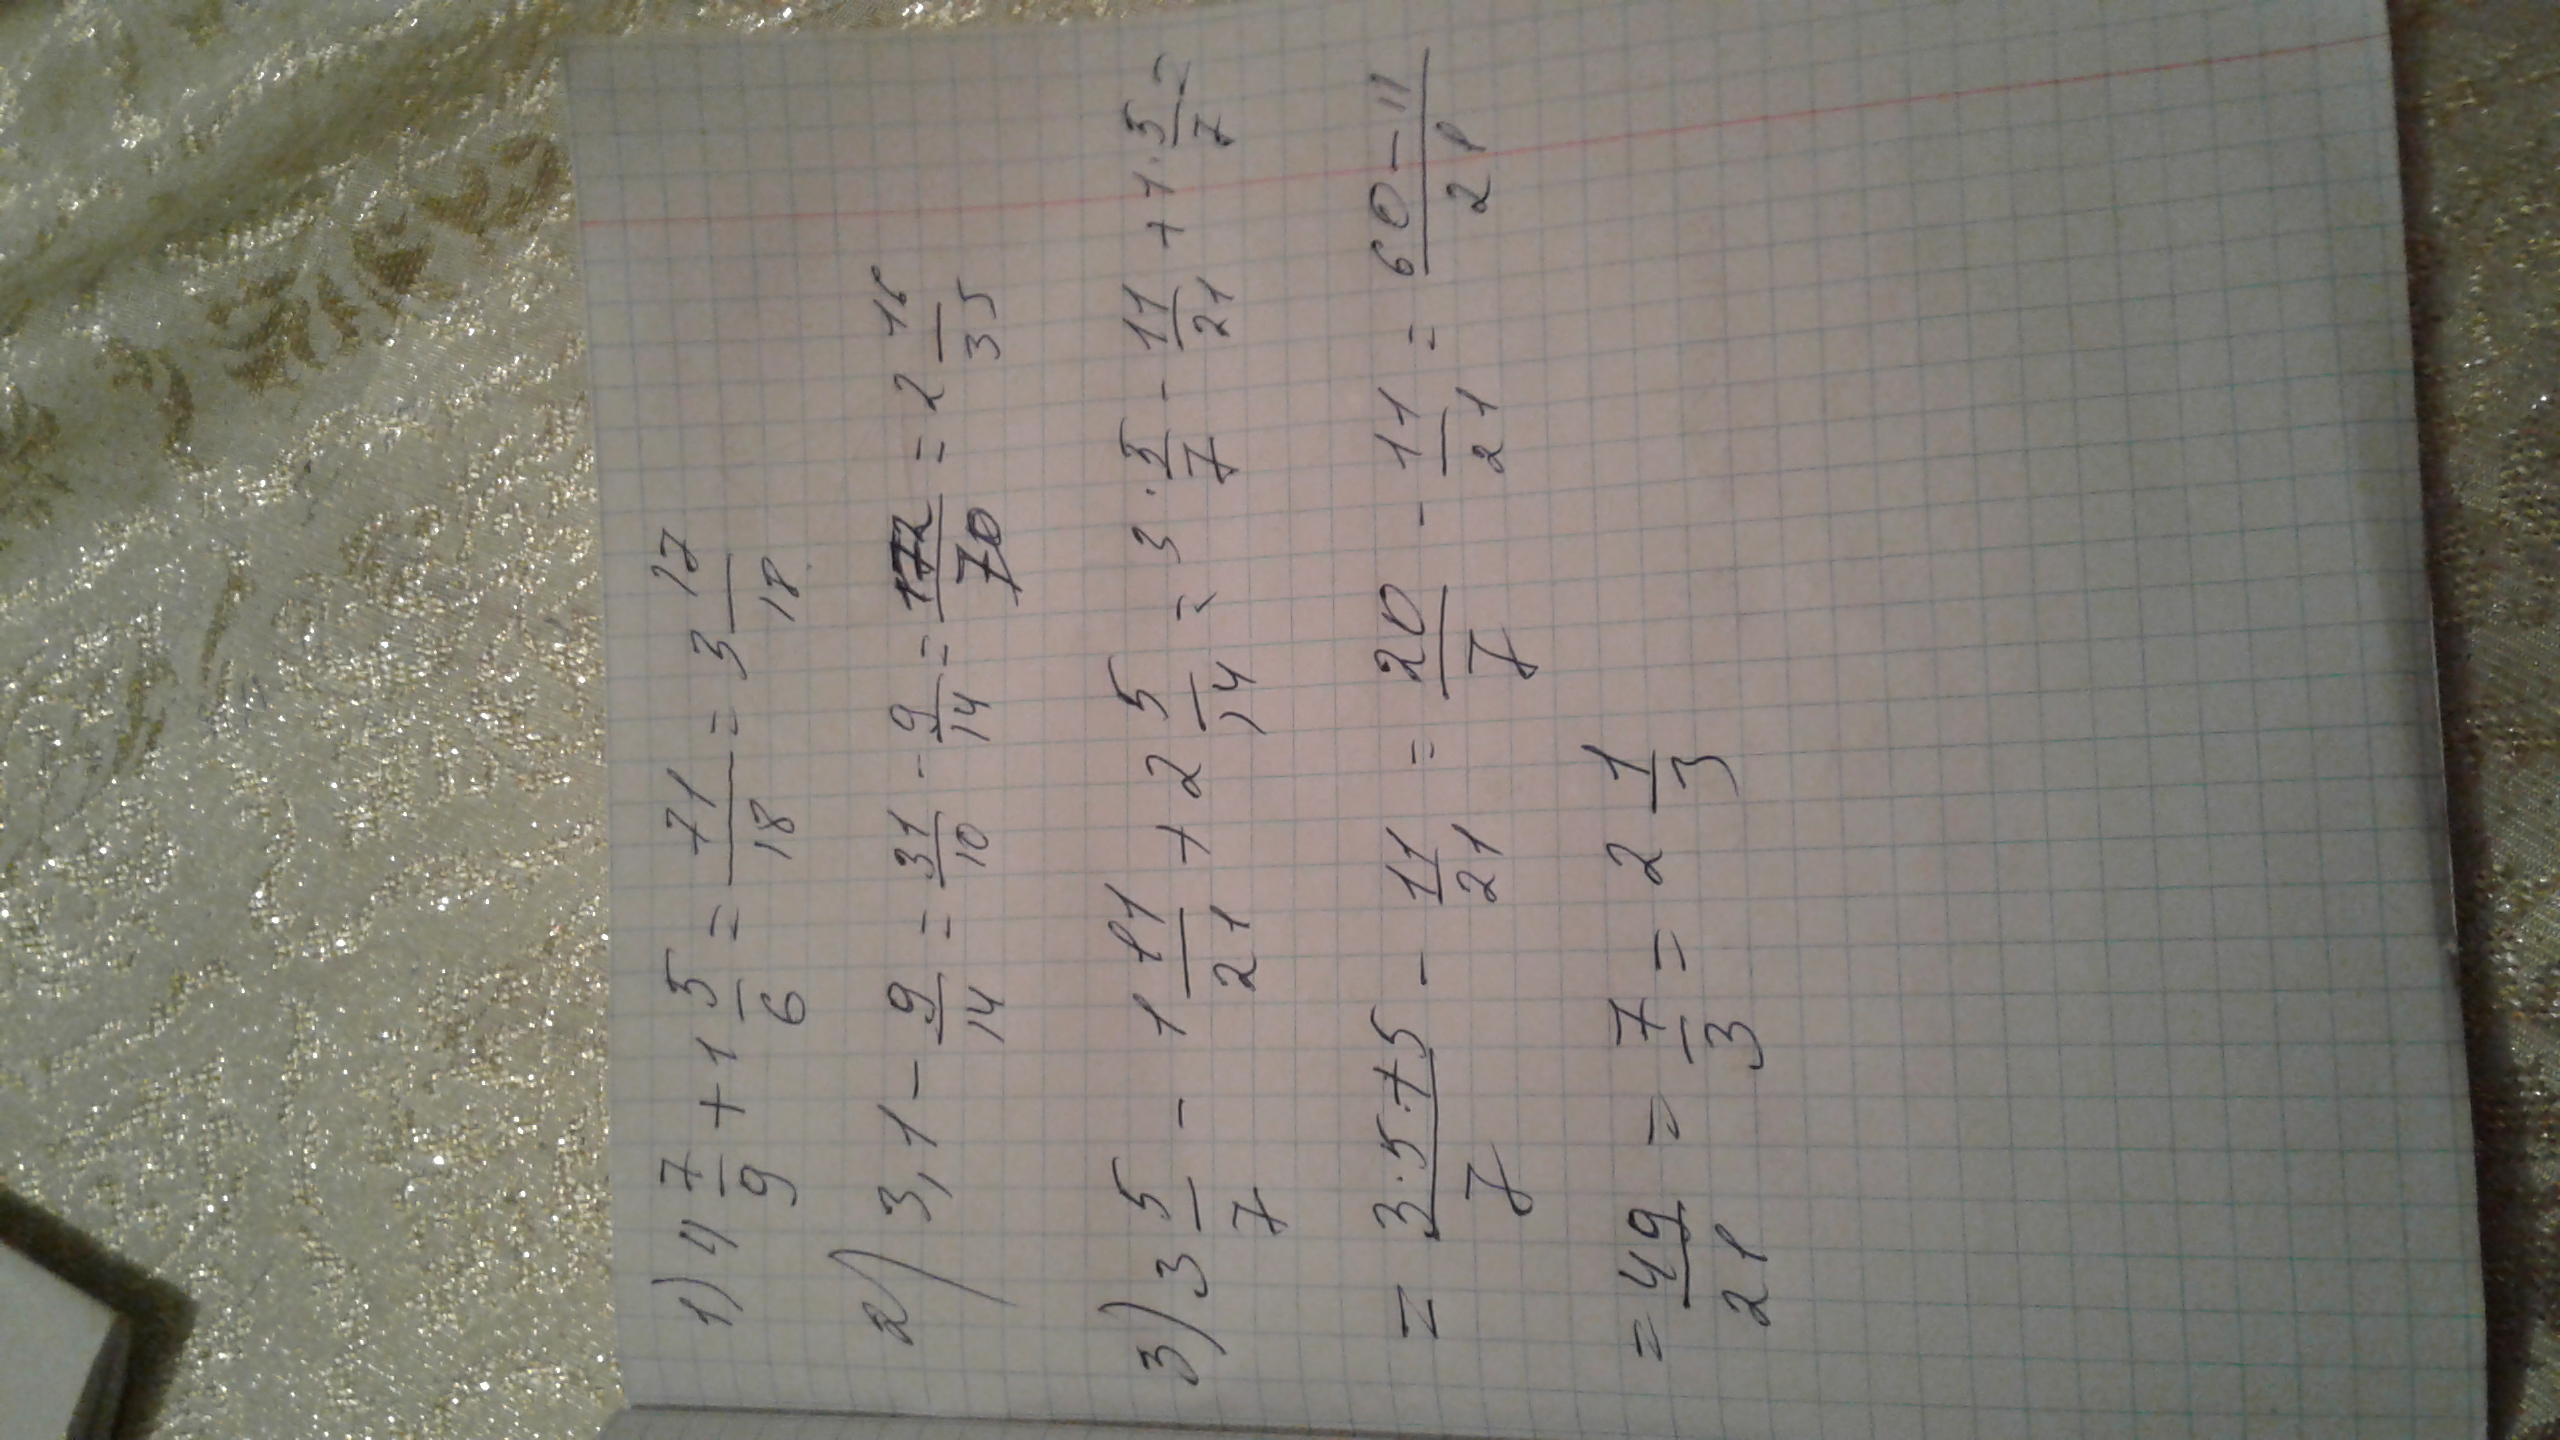 1) 4 7/9 + 1 5/6 = 71/18 = 3 17/18
2) 3,1 - 9/14 = 31/10 - 9/14 = 172/70 = 2 16/35
3) 3 5/7 - 1 11/21 + 2 5/14 = 3 · 5/7 - 11/21 + 1 · 5/7 =
= 3·5+5/7 - 11/21 = 20/7 - 11/21 = 60-11/21
= 49/21 = 7/3 = 2 1/3